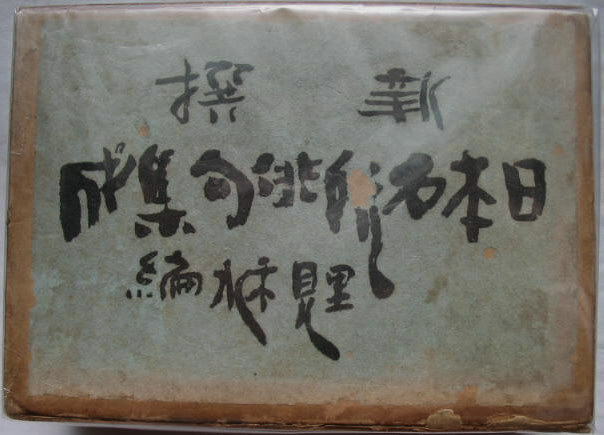 撰
日本名所俳句集成
里見禾水編